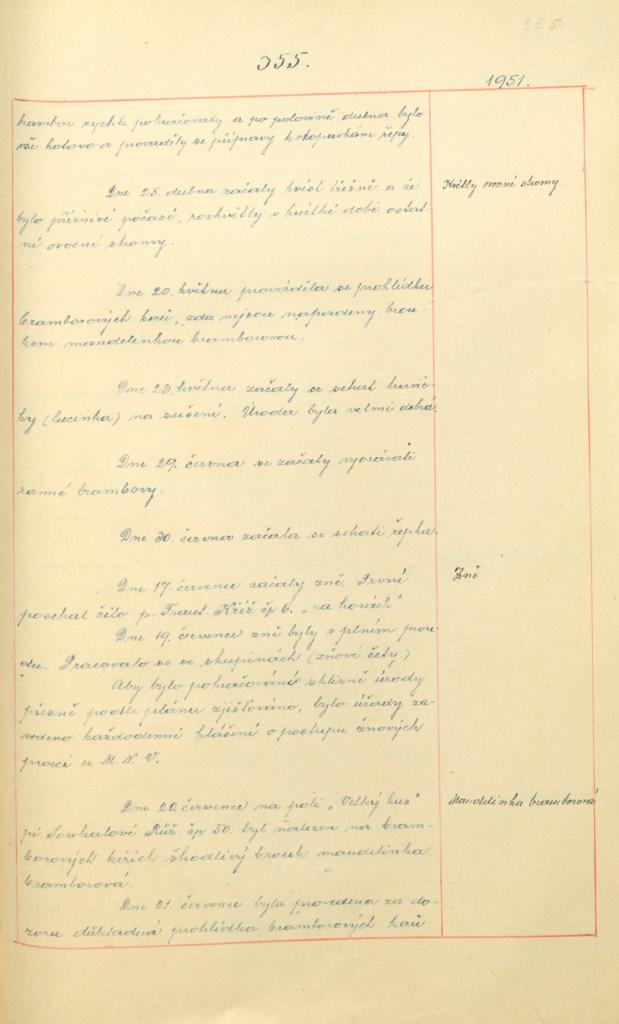 355.
355.
1951.
brambor rychle pokračovaly a po polovině dubna bylo
vše hotovo a prováděly se přípravy k okopávkám řepy.
Dne 25. dubna začaly kvést třešně a že
Kvetly ovocné stromy.
bylo příznivé počasí, rozkvetly v krátké době ostat-
ní ovocné stromy.
Dne 20. května prováděla se prohlídka
bramborových keřů, zda nejsou napadeny brou-
kem mandelinkou bramborovou.
Dne 23. května začaly se sekat travič-
ky (lucinka) na sušení. Úroda byla velmi dobrá.
Dne 29. června se začaly vyorávati
ranné brambory.
Dne 30. června začala se sekati řepka.
Dne 17. července začaly žně. První
Žně
posekal žito p. Frant. Kříž čp 6. „na horách"
Dne 19. července žně byly v plném prou-
du. Pracovalo se ve skupinách (žňové čety.)
Aby bylo pokračování sklizně úrody
přesně podle plánu zjišťováno, bylo úřady za-
vedeno každodenně hlášení o postupu žňových
prací u M. N. V.
Dne 20. července na poli „Velký kus"
Mandelinka bramborová
pí. Soukalové Růž. čp 50. byl nalezen na bram-
borových keřích škodlivý brouk mandelinka
bramborová.
Dne 21. července byla provedena za do-
zoru důkladná prohlídka bramborových keřů